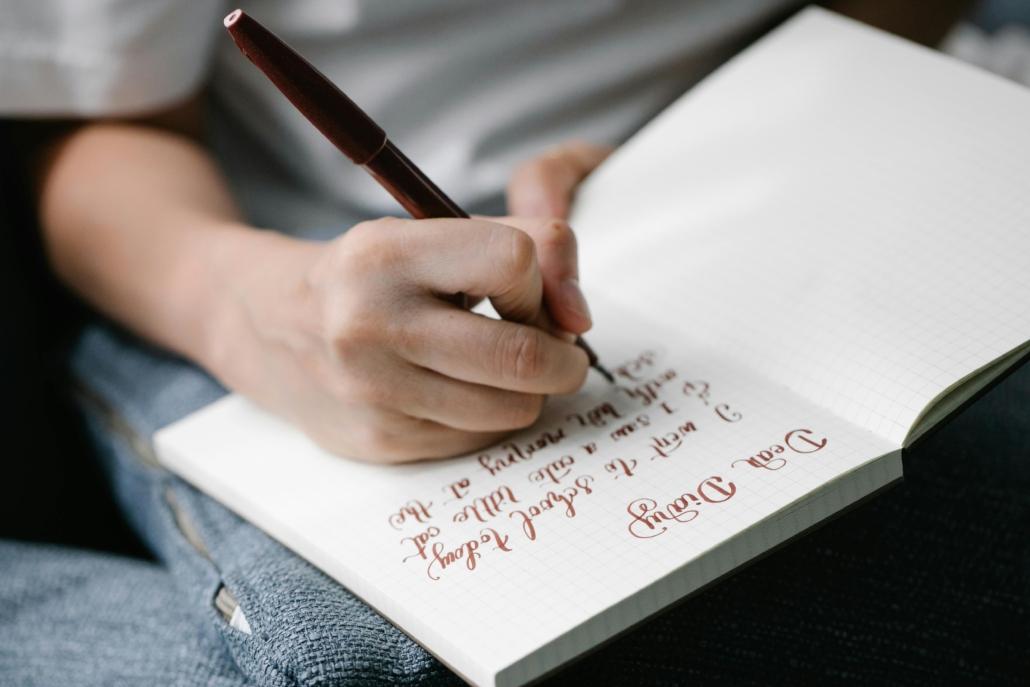 Dear Diary
I went to school today
I saw a cute little cat
morning at the